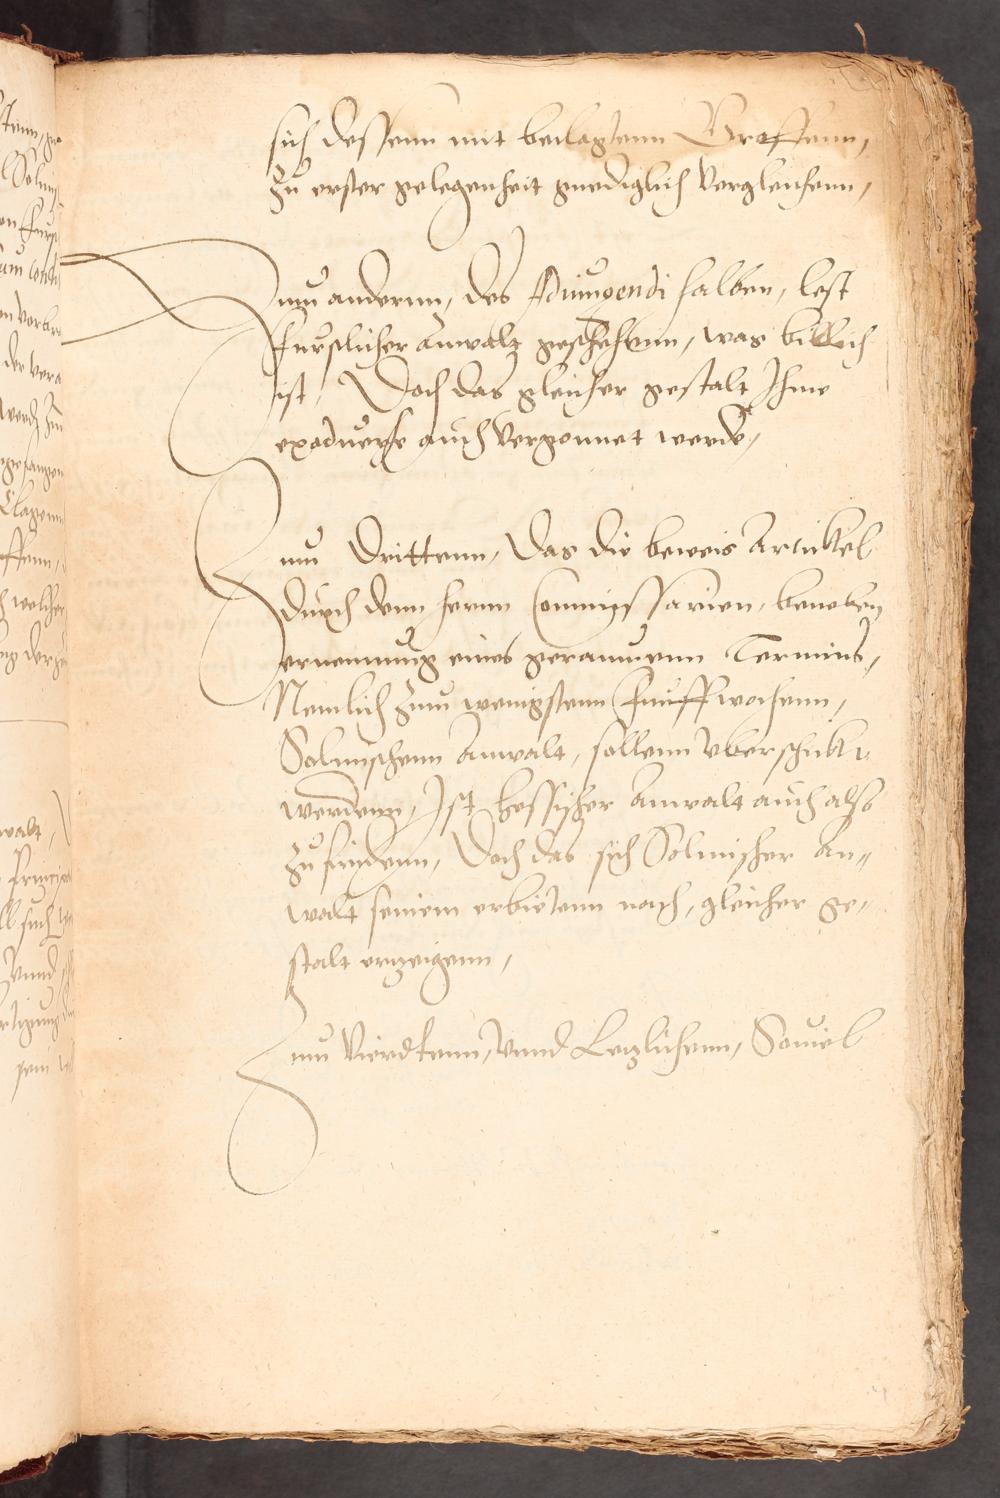 sich dessenn mit beclagtenn Graffenn,
Zu erster gelegenheit gnediglich vergleichenn,
Zum anderenn, des Adiungendi halben, lest
furstlicher anwalt geschehenn, was billich
ist, Doch das gleicher gestalt Ihme
exaduerso auch vergonnet werde,
Zum Drittenn, Das die beweis Artickel
durch denn hernn Commissarien, beneben
ernennung eines geraumenn Termins,
Nemlich Zum wenigstenn funff wochenn,
Solmischenn Anwalt, sollenn vberschickt
werdenn, Ist hessischer Anwalt auch also
zu fridenn, Doch das sich Solmischer An=
walt seinem erbietenn nach, gleicher ge=
stalt erzeigenn,
Zum Vierdtenn, vnnd Letzlichenn, Souiel